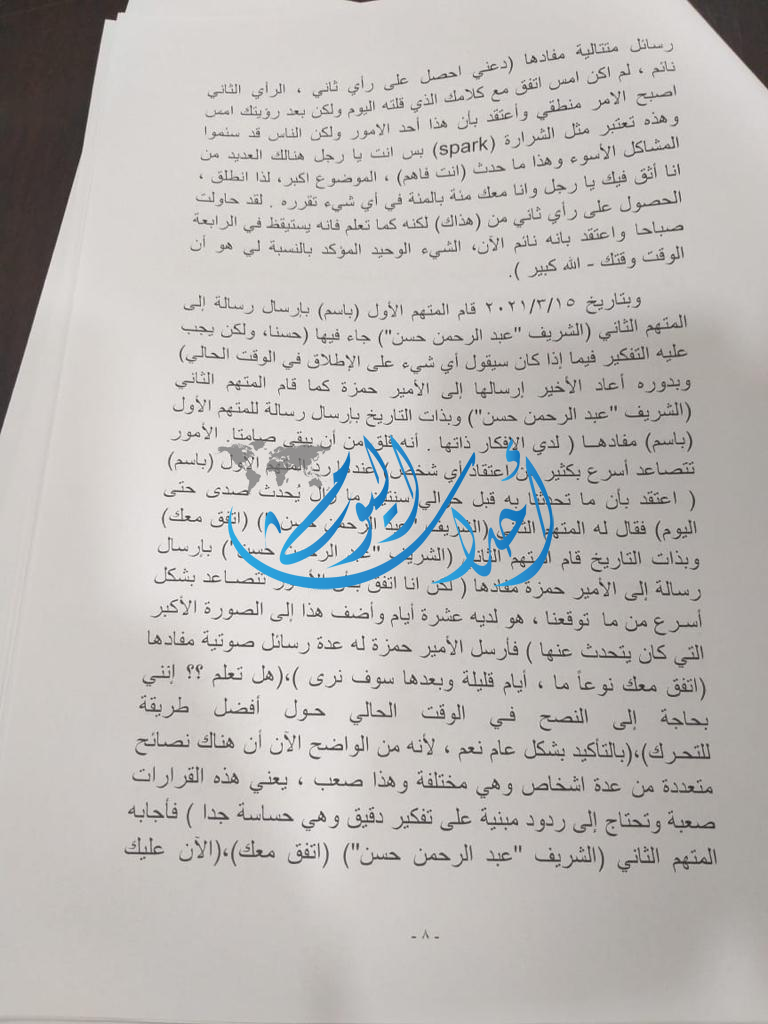 رسائل متتالية مفادها (دعني احصل على رأي ثاني ، الرأي الثاني
نائم ، لم اكن امس اتفق مع كلامك الذي قلته اليوم ولكن بعد رؤيتك امس
اصبح الامر منطقي وأعتقد بأن هذا أحد الامور ولكن الناس قد سئموا
وهذه تعتبر مثل الشرارة (spark) بس انت يا رجل هنالك العديد من
المشاكل الأسوء وهذا ما حدث (انت فاهم) ، الموضوع اكبر، لذا انطلق ،
انا أثق فيك يا رجل وانا معك مئة بالمئة في أي شيء تقرره . لقد حاولت
الحصول على رأي ثاني من (هذاك) لكنه كما تعلم فانه يستيقظ في الرابعة
صباحا واعتقد بانه نائم الآن، الشيء الوحيد المؤكد بالنسبة لي هو أن
الوقت وقتك - الله كبير ).
وبتاريخ ٢٠٢١/٣/١٥ قام المتهم الأول (باسم) بإرسال رسالة إلى
المتهم الثاني (الشريف "عبد الرحمن حسن") جاء فيها (حسنا، ولكن يجب
عليه التفكير فيما إذا كان سيقول أي شيء على الإطلاق في الوقت الحالي)
وبدوره أعاد الأخير إرسالها إلى الأمير حمزة كما قام المتهم الثاني
(الشريف "عبد الرحمن حسن") وبذات التاريخ بإرسال رسالة للمتهم الأول
(باسم) مفادهـا ( لدي الافكار ذاتها . أنه قلق من أن يبقى صامتا. الأمور
تتصاعد أسرع بكثير من اعتقاد أي شخص) عندها رد المتهم الأول (باسم)
( اعتقد بأن ما تحدثنا به قبل حوالي سنتين ما زال يُحدث صدى حتى
اليوم) فقال له المتهم الثاني (الشريف "عبد الرحمن حسن") (اتفق معك)
وبذات التاريخ قام المتهم الثاني (الشريف "عبد الرحمن حسن") بإرسال
رسالة إلى الأمير حمزة مفادها ( لكن انا اتفق بأن الأمور تتصاعد بشكل
أسرع من ما توقعنا ، هو لديه عشرة أيام وأضف هذا إلى الصورة الأكبر
التي كان يتحدث عنها ) فأرسل الأمير حمزة له عدة رسائل صوتية مفادها
(اتفق معك نوعاً ما ، أيام قليلة وبعدها سوف نرى )،(هل تعلم ؟؟ إنني
بحاجة إلى النصح في الوقت الحالي حول أفضل طريقة
للتحرك)،(بالتأكيد بشكل عام نعم ، لأنه من الواضح الآن أن هناك نصائح
متعددة من عدة اشخاص وهي مختلفة وهذا صعب ، يعني هذه القرارات
صعبة وتحتاج إلى ردود مبنية على تفكير دقيق وهي حساسة جدا ) فأجابه
المتهم الثاني (الشريف "عبد الرحمن حسن") (اتفق معك)،(الآن عليك
أحداث اليوم
- ٨ -